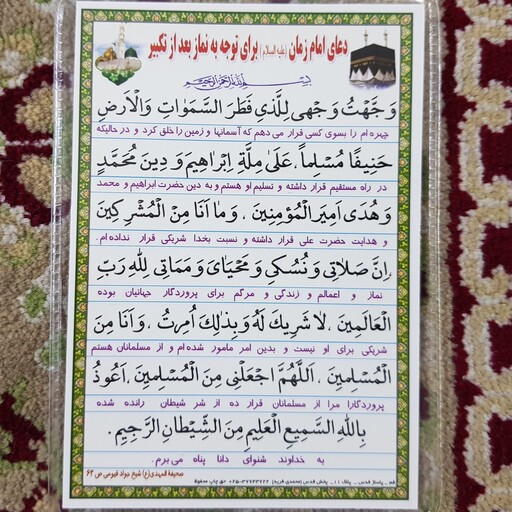 دعای امام زمان (علیه السلام) برای توجه به نماز بعد از تکبیر
بِسْمِ اللهِ الرَّحْمنِ الرَّحیمِ
وَجَّهْتُ وَجْهِیَ لِلَّذی فَطَرَ السَّمَوٰاتِ وَالْاَرْضِ
چهره ام را بسوی کسی قرار می دهم که آسمانها و زمین را خلق کرد و در حالیکه
حَنیفًا مُسْلِماً، عَلیٰ مِلَّةِ اِبْرٰاهیمَ وَ دینِ مُحَمَّدٍ
در راه مستقیم قرار داشته و تسلیم او هستم و به دین حضرت ابراهیم و محمد
وَ هُدیٰ اَمیرِ الْمُؤْمِنینَ، وَ مٰا اَنَا مِنَ الْمُشْرِکینَ
و هدایت حضرت علی قرار داشته و نسبت بخدا شریکی قرار نداده ام.
،اِنَّ صَلاتی وَ نُسُکی وَ مَحْیٰایَ وَ مَمٰاتی لِلّٰهِ رَبِّ
نماز و اعمالم و زندگی و مرگم برای پروردگار جهانیان بوده
الْعٰالَمینَ، لا شَریکَ لَهُ وَ بِذٰلِکَ اُمِرْتُ، وَ اَنَا مِنَ
شریکی برای او نیست و بدین امر مامور شده ام و از مسلمانان هستم
الْمُسْلِمینَ، اَللّٰهُمَّ اجْعَلْنی مِنَ الْمُسْلِمینَ، اَعُوذُ
پروردگارا مرا از مسلمانان قرار ده از شر شیطان رانده شده
بِاللهِ السَّمیعِ الْعَلیمِ مِنَ الشَّیْطٰانِ الرَّجیمِ.
به خداوند شنوای دانا پناه می برم.
صحیفة المهدی(ع) شیخ جواد قیومی ص ۶۲
قم ـ پاساژ قدس ـ پلاک ۱۱ ـ پخش قدس (محمدی فرید) ۳۷۷۴۳۷۲۲-۰۲۵ حق چاپ محفوظ